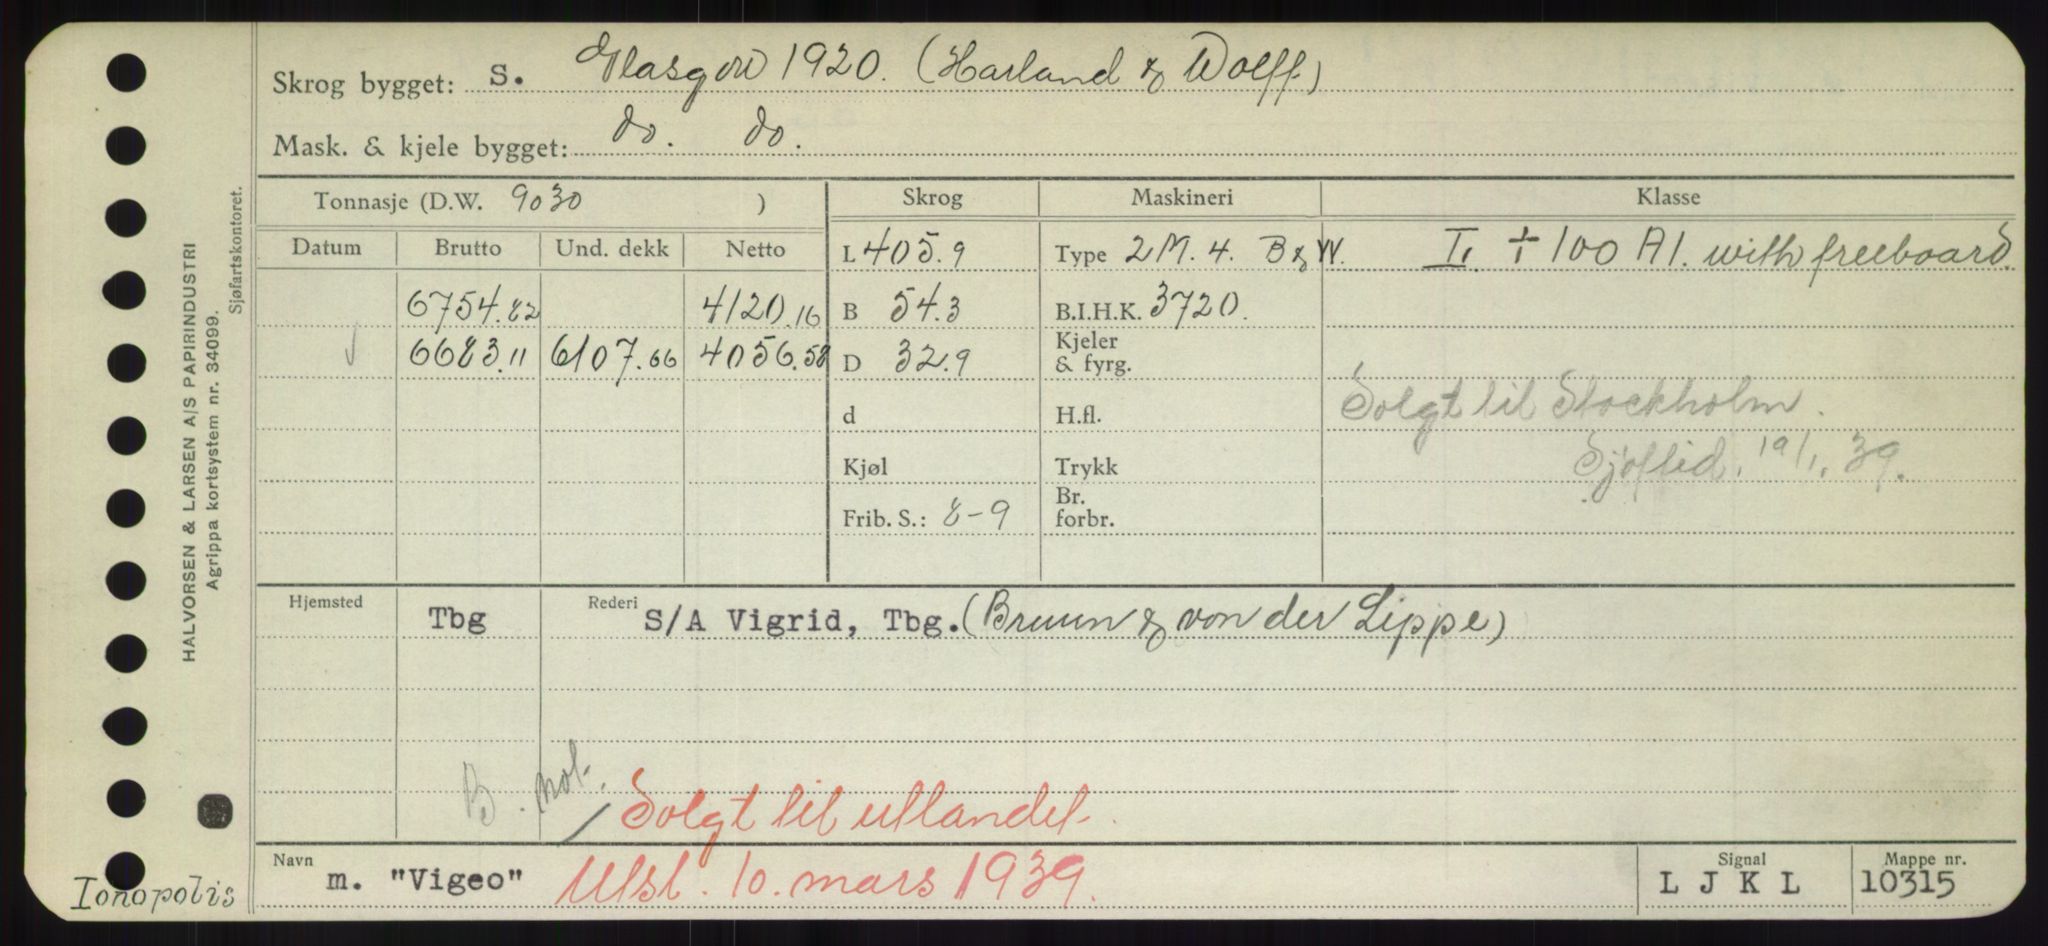 Skrog bygget: S. Glasgow 1920. (Harland & Wolff)
Mask. & kjele bygget: do. do.
Tonnasje (D.W. 9030 )
Skrog
Maskineri
Klasse
Datum
Brutto
Und. dekk
Netto
L 405.9
Type 2 M. 4. B & W.
I. + 100 A1. with freeboard.
6754.82
4120.16
B 54.3
B.I.H.K. 3720.
√ 6683.11 6107.66 4056.58
D 32.9
Kjeler & fyrg.
d
H.fl.
Solgt til Stockholm.
Kjøl
Trykk
Sjøftid. 19/1. 39.
Frib. S.: 8-9
Br. forbr.
Hjemsted
Tbg
Rederi
S/A Vigrid, Tbg. (Bruun & von der Lippe)
B. not.
Solgt til utlandet.
Navn
m. "Vigeo"
Utsl. 10. mars 1939.
Signal
L J K L
Mappe nr.
10315
Ionopolis
HALVORSEN & LARSEN A/S PAPIRINDUSTRI
Agrippa kortsystem nr. 34099.
Sjøfartskontoret.